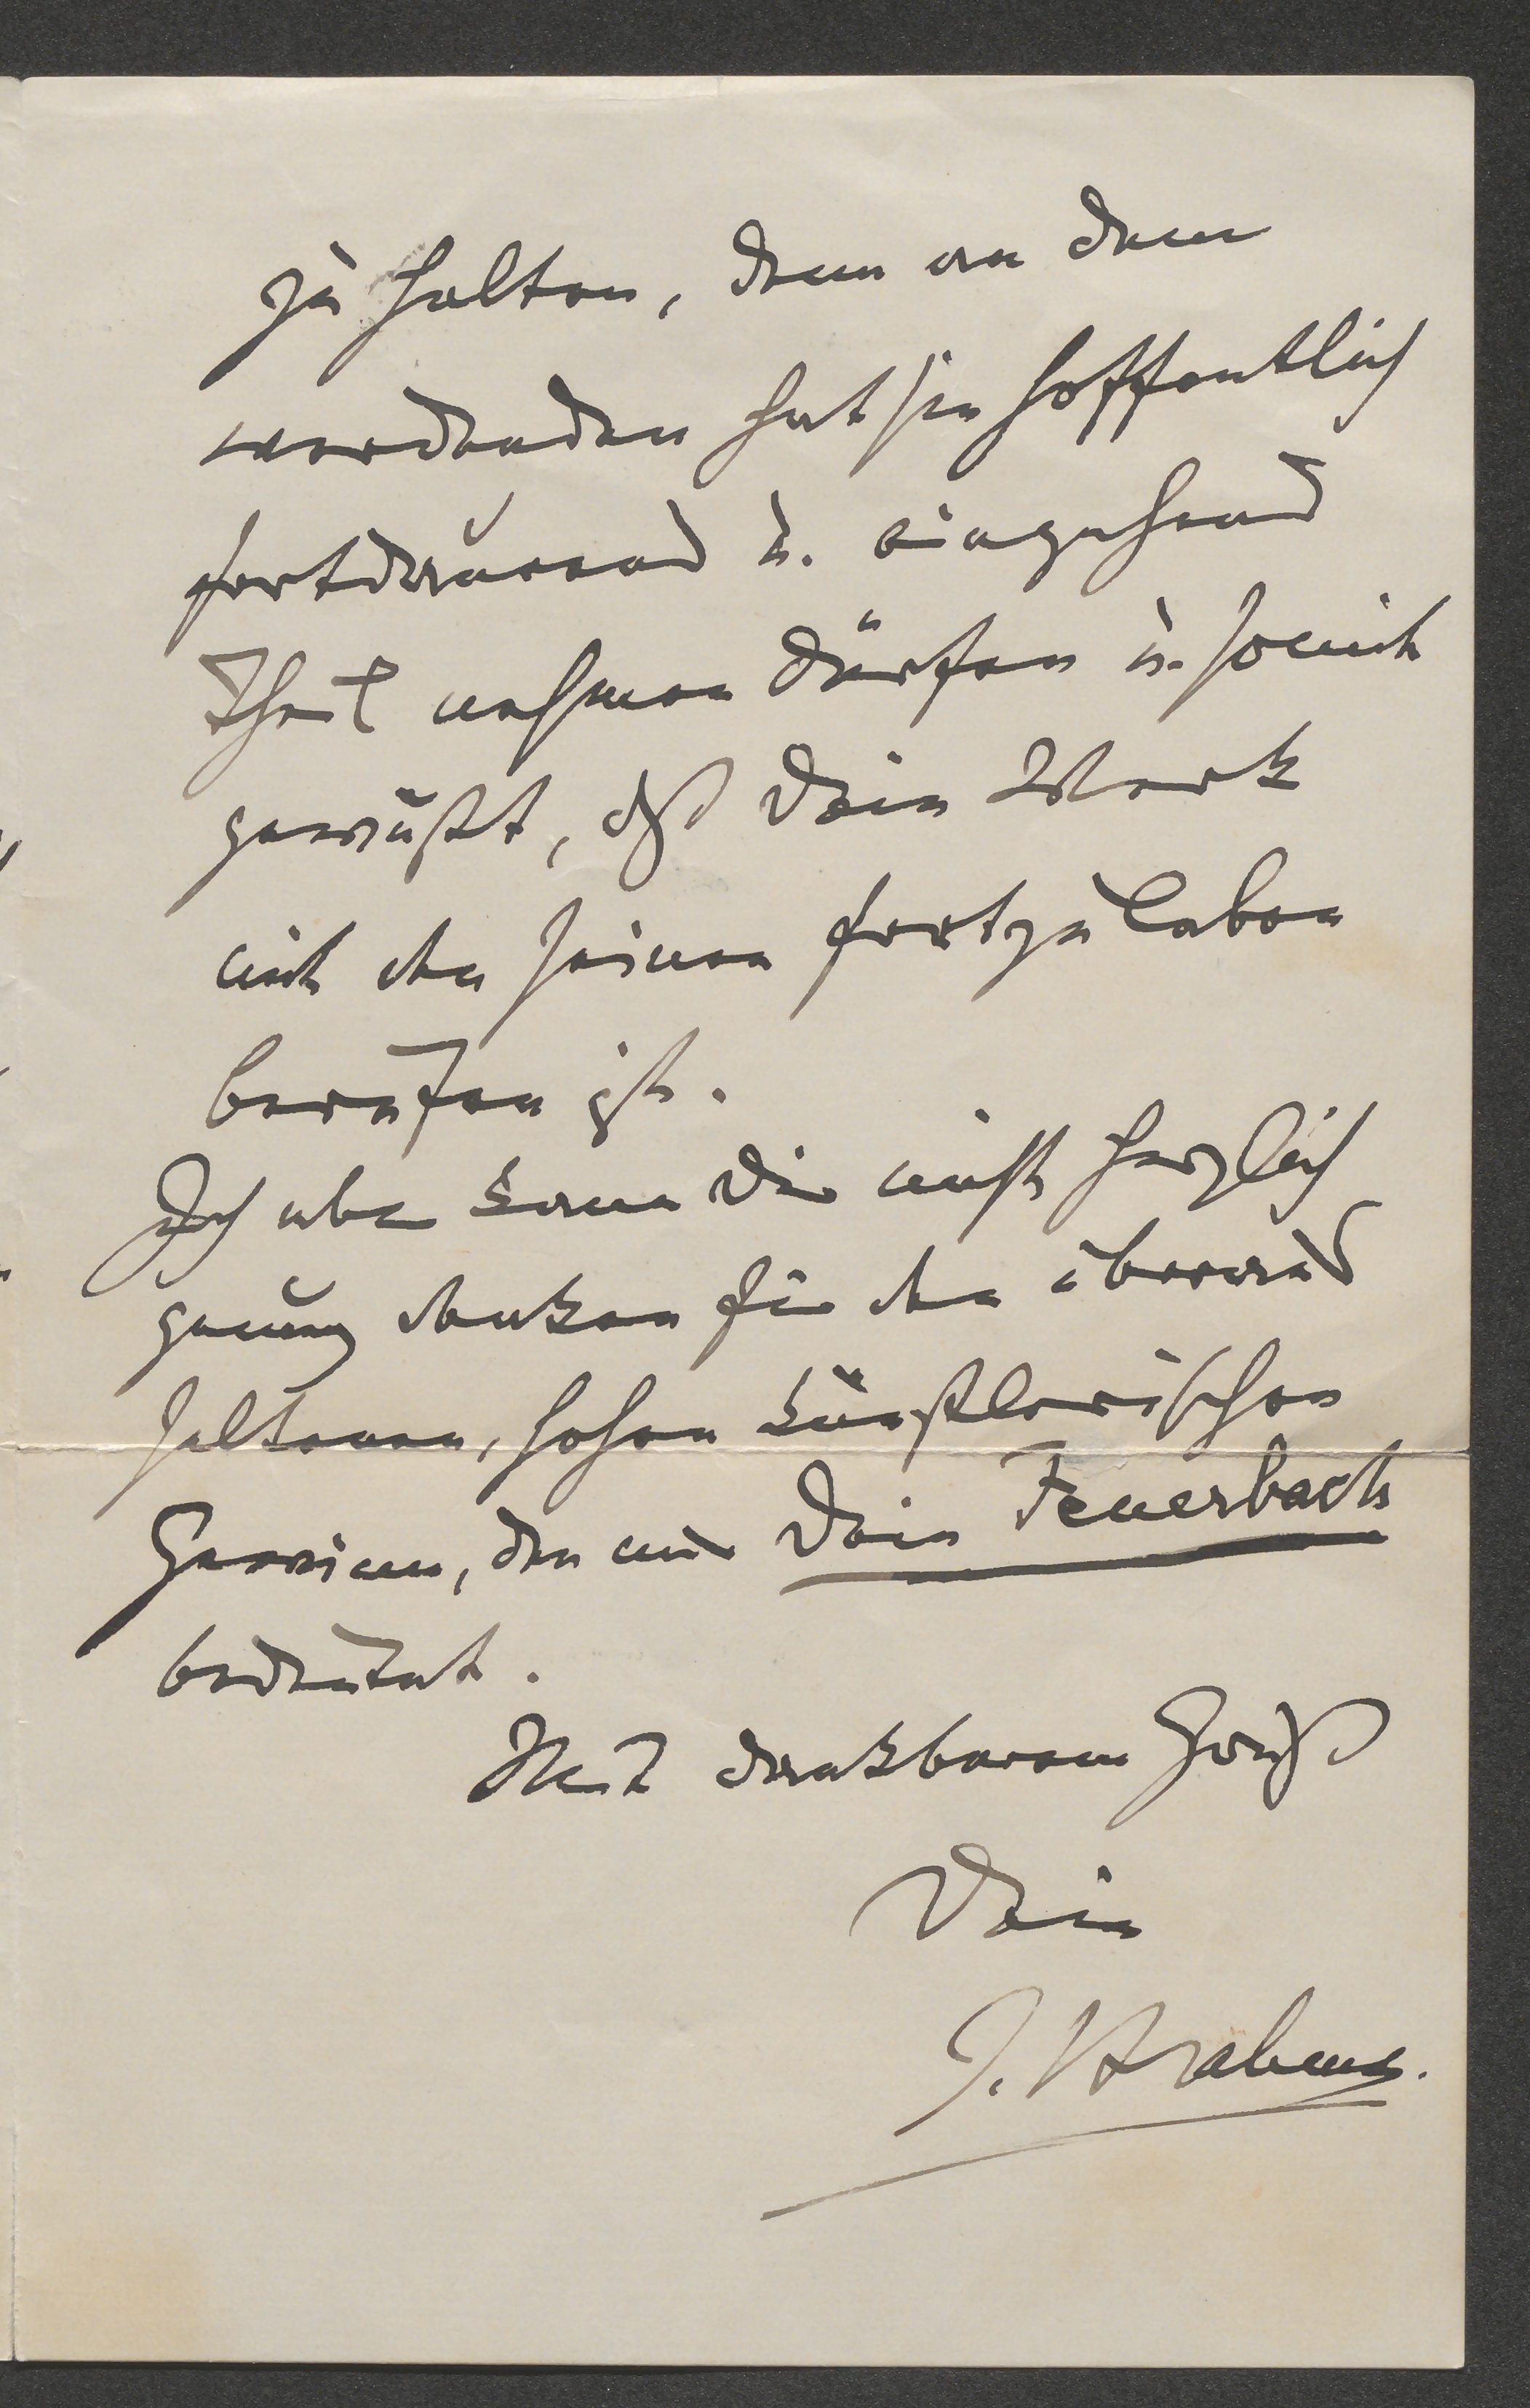 zu halten, denn an dem
werdenden hat sie hoffentlich
fortdauernd u. eingehend
Theil nehmen dürfen u. somit
gewußt, daß Dein Werk
mit den seinen fortzuleben
berufen ist.
Ich aber kann Dir nicht herzlich
genug danken für den überaus
seltenen, hohen künstlerischen
Gewinn, den mir Dein Feuerbach
bedeutet.
Mit dankbarem Gruß
Dein
J. Brahms.